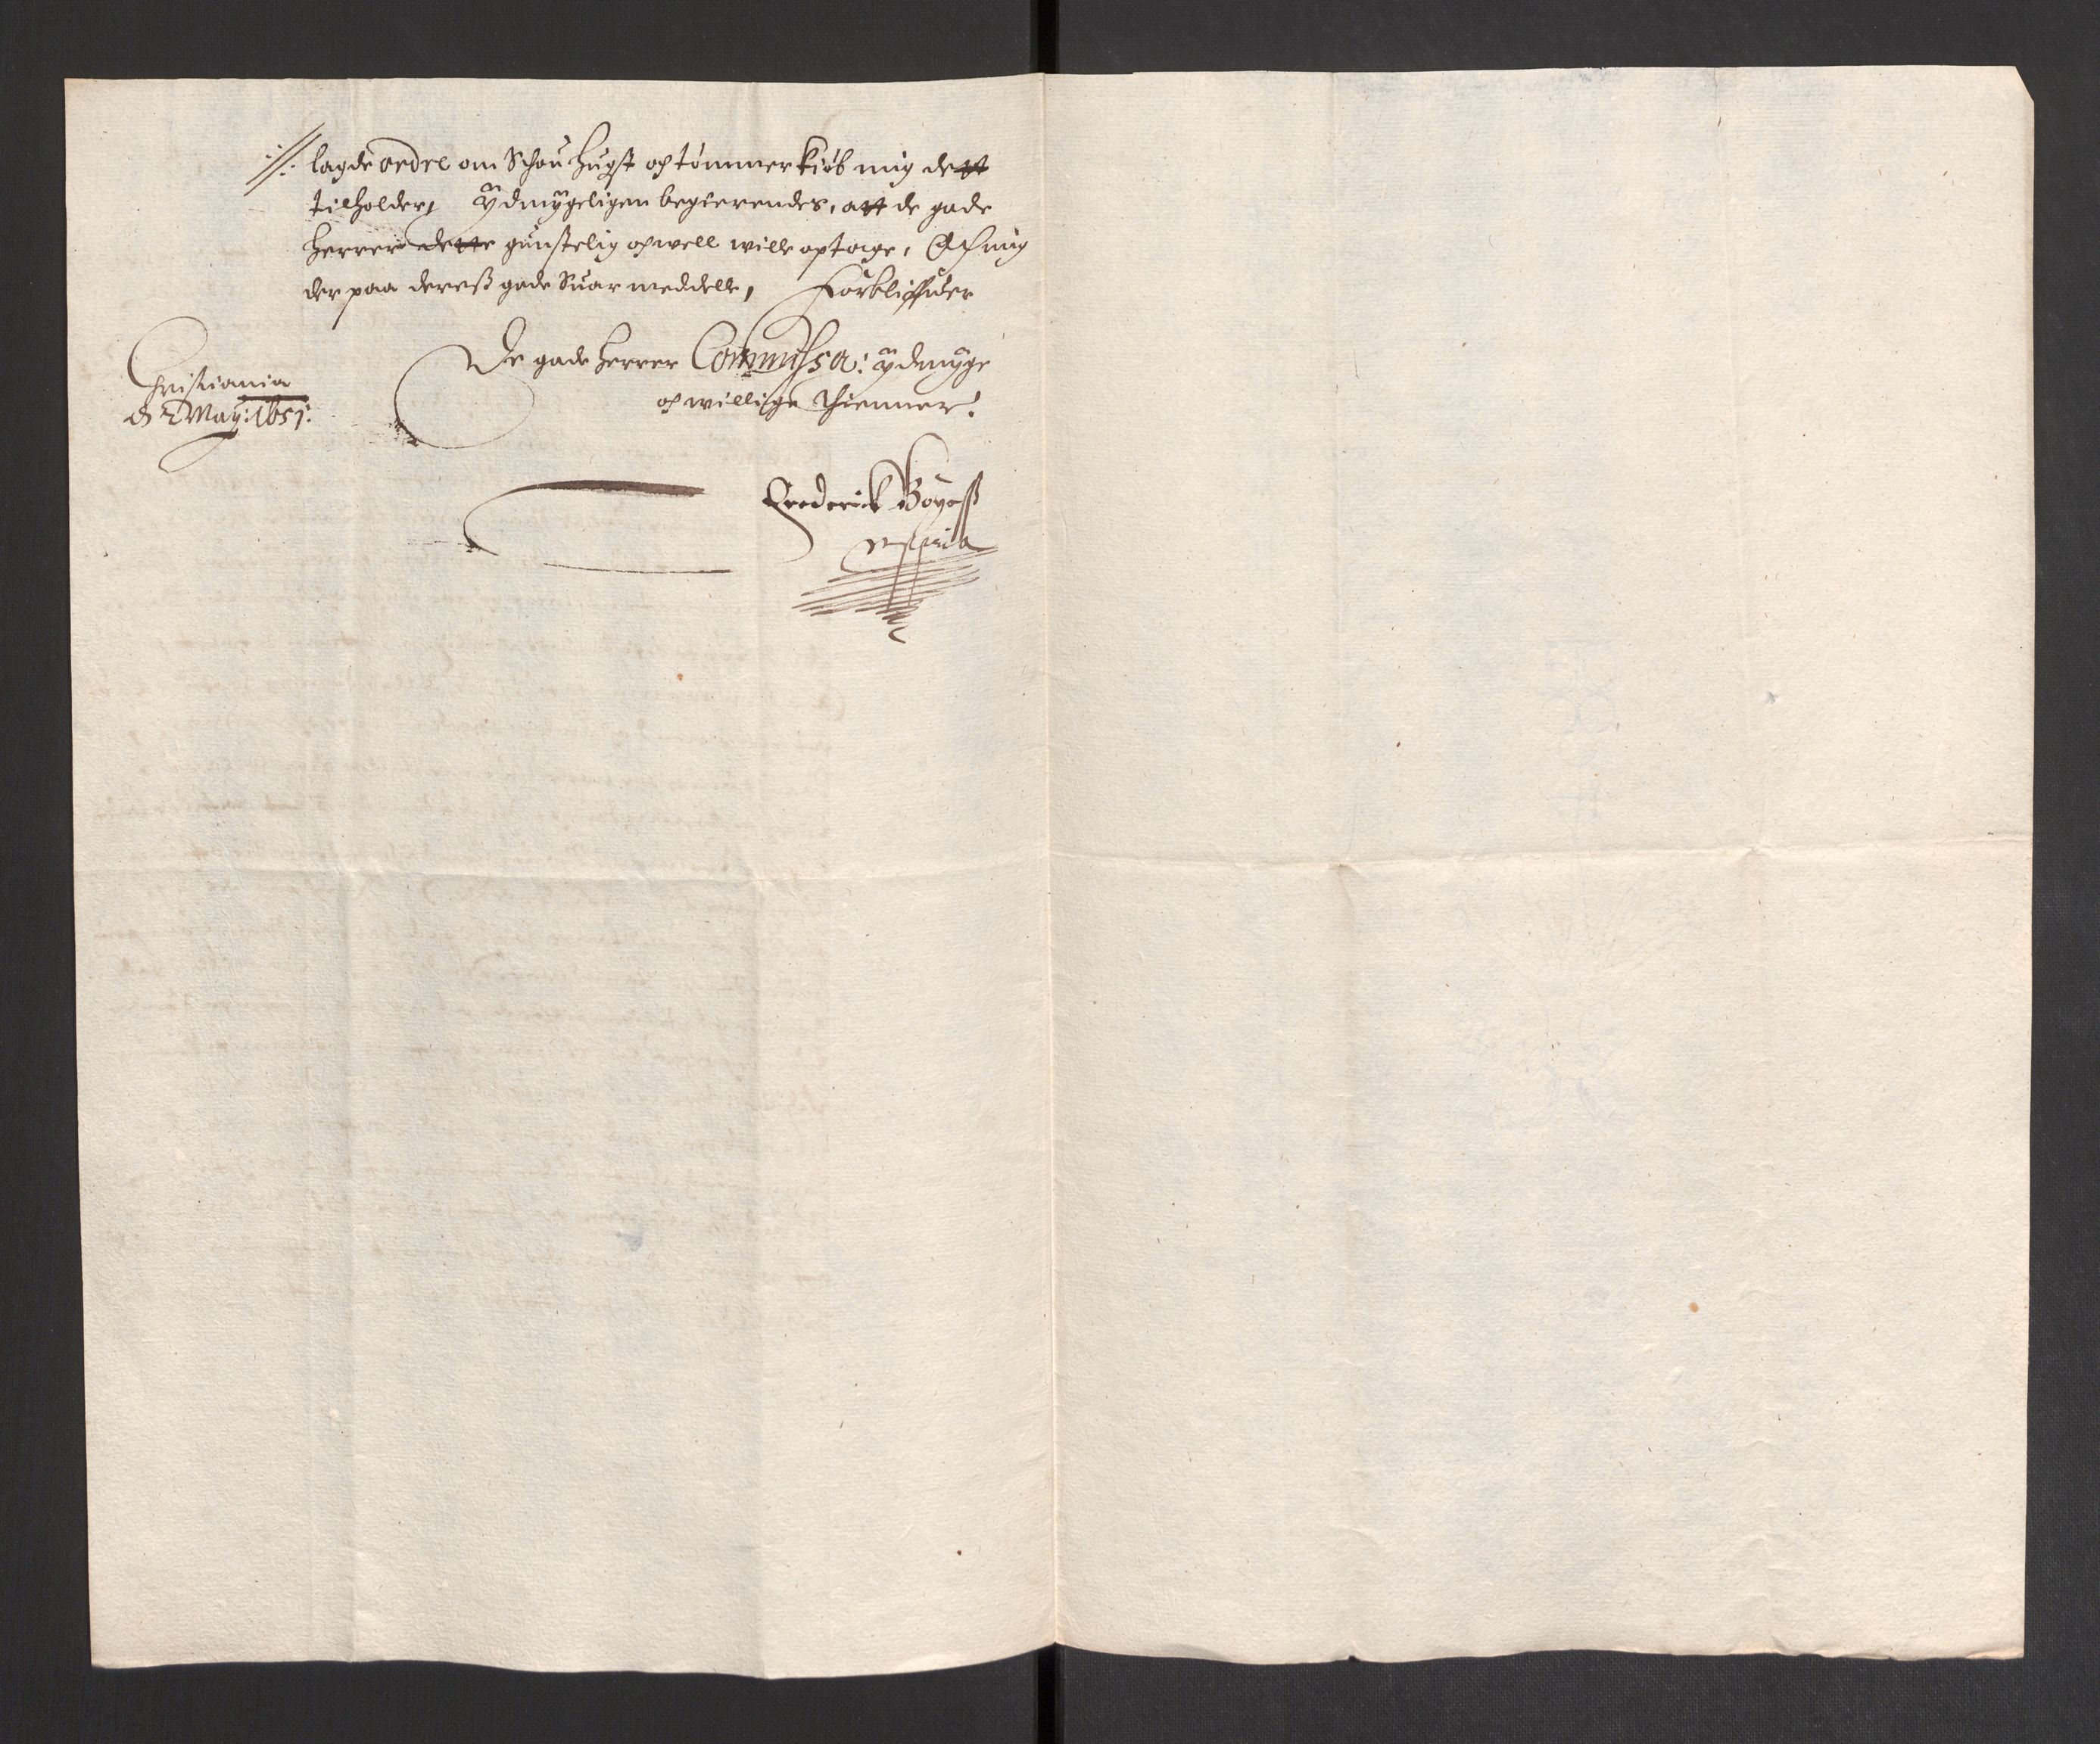 ://: lagde ordre om Schou hugst och tømmer kiøb mig dett
tilholder, Ydmygeligen begierendes, att de gode
Herrer dette gunstelig och well wille optage, Och mig
der paa deress gode Suar meddelle, Forbliffuer
De gode Herrer Commissa: ydmyge
och willige Thienner.
Christiania
d 2 May: 1651:
Frederick Boyess